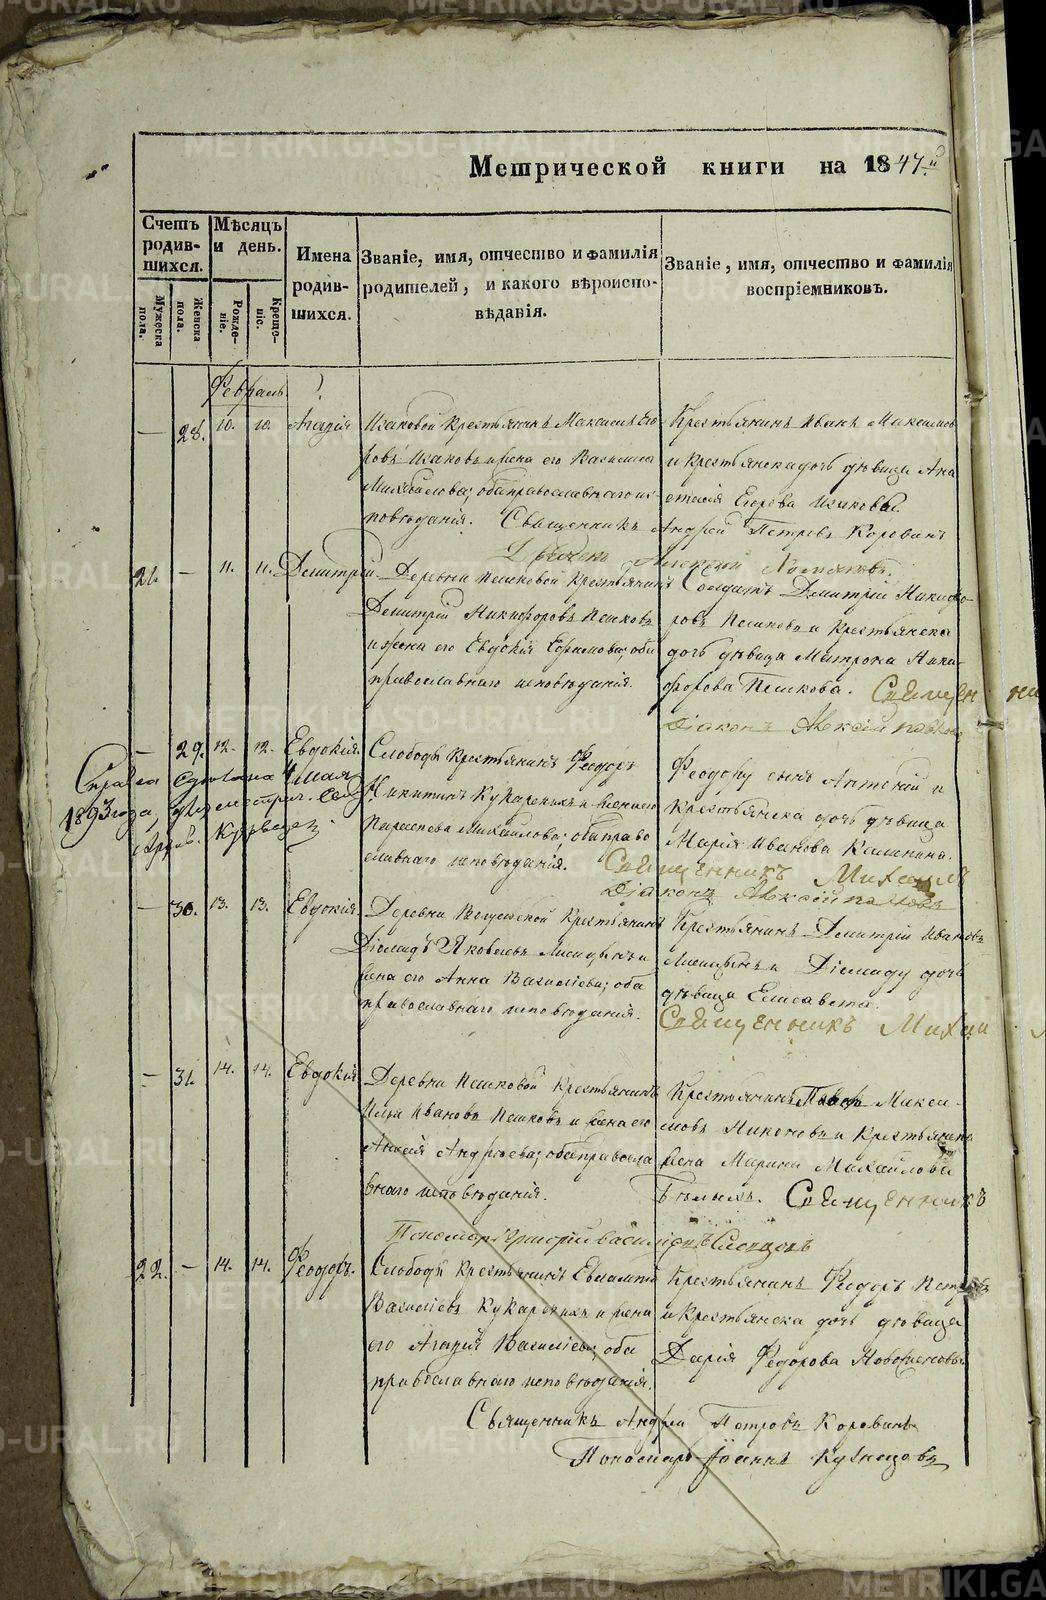 Метрической книги на 1847й
Счетъ родив-шихся.
Мужеска пола.
Женска пола.
Мѣсяцъ и день.
Рожде-ніе.
Креще-ніе.
Имена родив-шихся.
Званіе, имя, отчество и фамилія
родителей, и какого вѣроиспо-
вѣданія.
Званіе, имя, отчество и фамилія
воспріемниковъ.
Февраль
— 28. 10. 10. Агафія
Крестьянинъ Максимъ Его
ровъ Исаковъ и жена его Василиса
Михайлова; оба православнаго ис-
повѣданія.
Крестьянинъ Иванъ Максимовъ
и крестьянска дочь дѣвица Ана
стасія Егорова Исаковы.
Священникъ Андрей Петровъ Коровинъ
21. — 11. 11. Димитрій
Деревни Пешковой Крестьянинъ
Димитрій Никифоровъ Пешковъ
и жена его Евдокія Ефимова; оба
православнаго исповѣданія.
Солдатъ Димитрій Никифо-
ровъ Пешковъ и Крестьянска
дочь дѣвица Матрона Ники-
форова Пешкова. Священ ни
Діаконъ Алексій
— 29. 12. 12. Евдокія.
Слободы Крестьянинъ Феодоръ
Никитинъ Кукаркинъ и жена его
Параскева Михайлова; оба право
славнаго исповѣданія.
Феодору сынъ Антоній и
Крестьянска дочь дѣвица
Марія Иванова Калинина.
Священникъ Михаилъ
Діаконъ Алексій
1893 года,
— 30. 13. 13. Евдокія.
Деревни Крестьянинъ
Діомидъ Яковлевъ и
жена его Анна Васильева; оба
православнаго исповѣданія.
Крестьянинъ Димитрій Ивановъ
и Діомиду дочь
дѣвица Елисавета.
Священникъ Михаи
— 31. 14. 14. Евдокія
Деревни Пешковой Крестьянинъ
Илья Ивановъ Пешковъ и жена его
Андреева; оба правосла
внаго исповѣданія.
Крестьянинъ Макси-
мовъ Никоновъ и Крестьянска
жена Марина Михайлова
Бѣлыхъ. Священникъ
Пономарь Григорій Васильевъ Словцовъ
22. — 14. 14. Феодоръ.
Слободы Крестьянинъ Евлампій
Васильевъ Кукаркинъ и жена
его Агафія Васильева; оба
православнаго исповѣданія.
Крестьянинъ Феодоръ Петровъ
и Крестьянска дочь дѣвица
Дарія Федорова Новоселовы.
Священникъ Андрей Петровъ Коровинъ
Пономарь Іоаннъ Кузнецовъ
METRIKI.GASO-URAL.RU